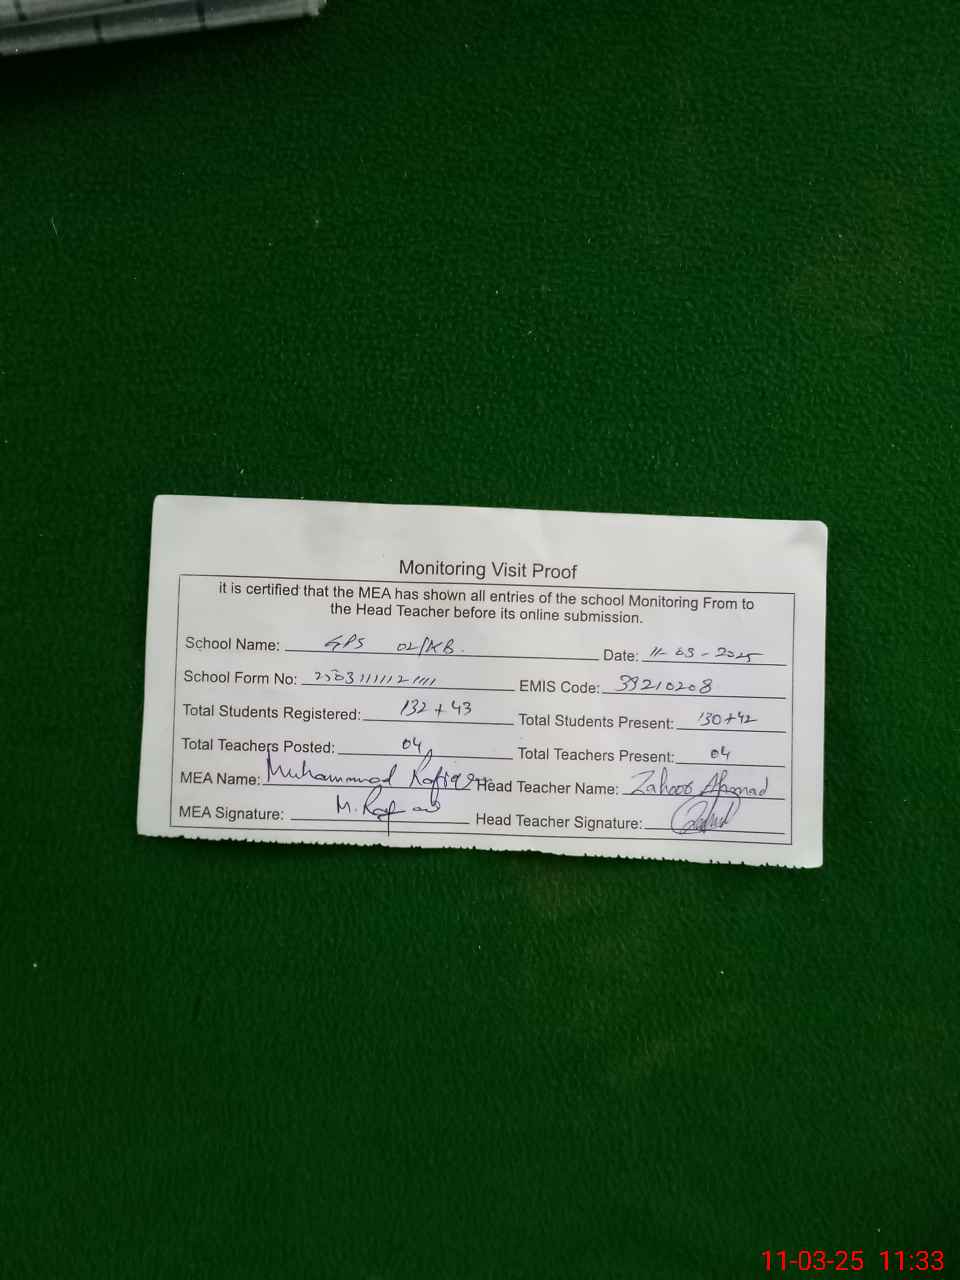 Monitoring Visit Proof
it is certified that the MEA has shown all entries of the school Monitoring From to
the Head Teacher before its online submission.
School Name: GPS 02/KB. Date: 11-03-2025
School Form No: EMIS Code: 39210208
Total Students Registered: 132 + 43 Total Students Present: 130+42
Total Teachers Posted: 04 Total Teachers Present: 04
MEA Name: Muhammad Rafique Head Teacher Name: Zahoor Ahmad
MEA Signature: Head Teacher Signature:
11-03-25 11:33